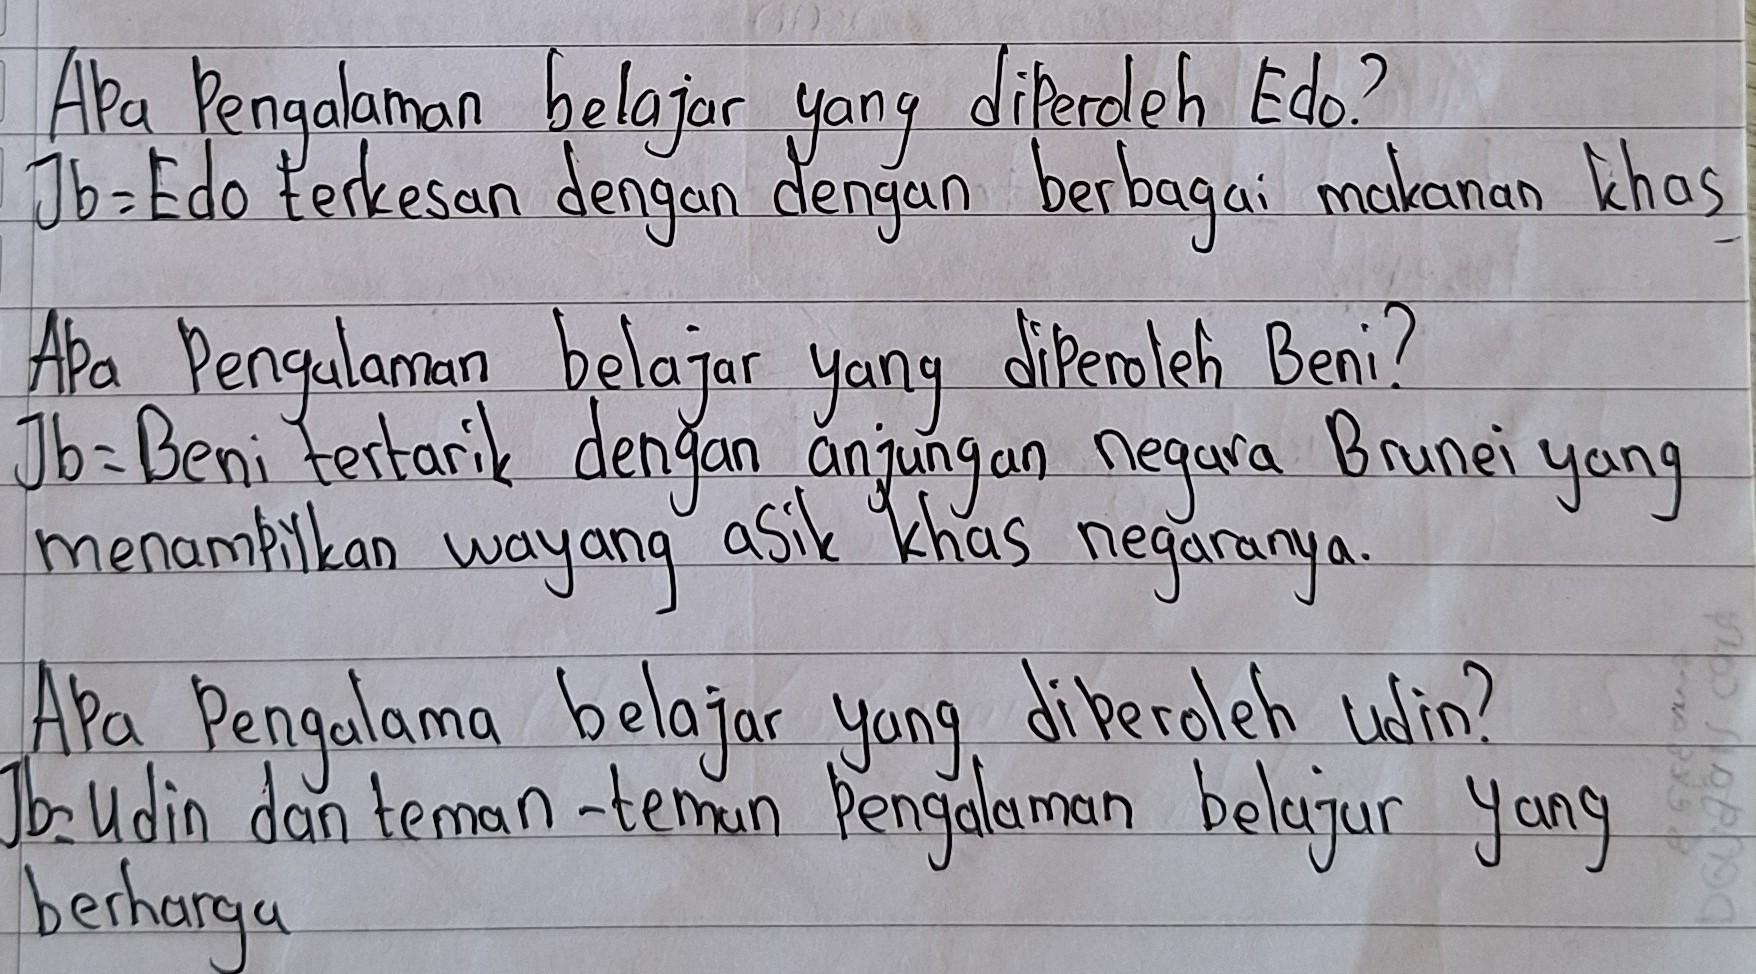 Apa Pengalaman belajar yang diperoleh Edo.?
Jb=Edo terkesan dengan dengan berbagai makanan khas
Apa Pengalaman belajar yang diperoleh Beni?
Jb=Beni tertarik dengan anjungan negara Brunei yang
menampilkan wayang asik khas negaranya.
Apa Pengalama belajar yang diperoleh udin?
Jb=Udin dan teman-teman Pengalaman belajar yang
berharga